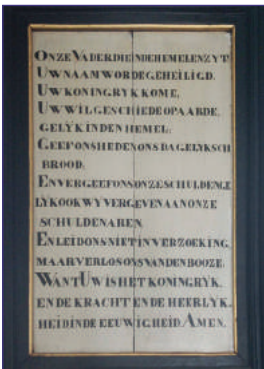 ONZE VADER DIE IN DE HEMELEN ZYT
UW NAAM WORDE GEHEILIGD.
UW KONINGRYK KOME.
UW WIL GESCHIEDE OP AARDE,
GELYK IN DEN HEMEL;
GEEF ONS HEDEN ONS DAGELYKSCH
BROOD;
EN VERGEEF ONS ONZE SCHULDEN GE
LYK OOK WY VERGEVEN AAN ONZE
SCHULDENAREN.
EN LEID ONS NIET IN VERZOEKING,
MAAR VERLOS ONS VAN DEN BOOZE.
WANT UW IS HET KONINGRYK,
EN DE KRACHT EN DE HEERLYK.
HEID IN DE EEUWIGHEID. AMEN.